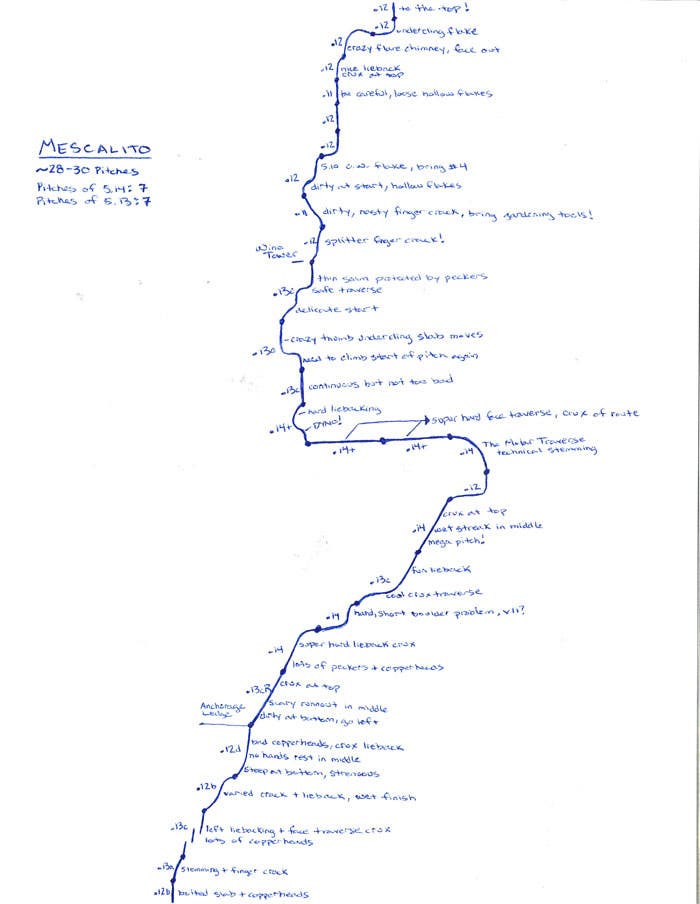 .12 to the top!
.12 undercling flake
.12 crazy flare chimney, face out
.12 nice lieback
crux at top
.11 be careful, loose hollow flakes
.12
.12
MESCALITO
~28-30 Pitches
Pitches of 5.14: 7
Pitches of 5.13: 7
5.10 o.w. flake, bring #4
.12 dirty at start, hollow flakes
.11 dirty, nasty finger crack, bring gardening tools!
.12 splitter finger crack!
Wino
Tower
thin seam protected by peckers
.13c safe traverse
delicate start
crazy thumb undercling slab moves
.13c
need to climb start of pitch again
.13c continuous but not too bad
hard liebacking
DYNO!
.14+
super hard face traverse, crux of route
.14+ .14+
.14 The Molar Traverse
technical stemming
.12
crux at top
.14 wet streak in middle
mega pitch!
fun lieback
.13c
cool crux traverse
.14 hard, short boulder problem, V11?
.14 super hard lieback crux
lots of peckers + copperheads
.13cR crux at top
scary runout in middle
Anchorage
Ledge
dirty at bottom, go left
bad copperheads, crux lieback
.12d no hands rest in middle
steep at bottom, strenuous
.12b varied crack + lieback, wet finish
.13c left liebacking + face traverse crux
lots of copperheads
.13a stemming + finger crack
.12b bolted slab + copperheads